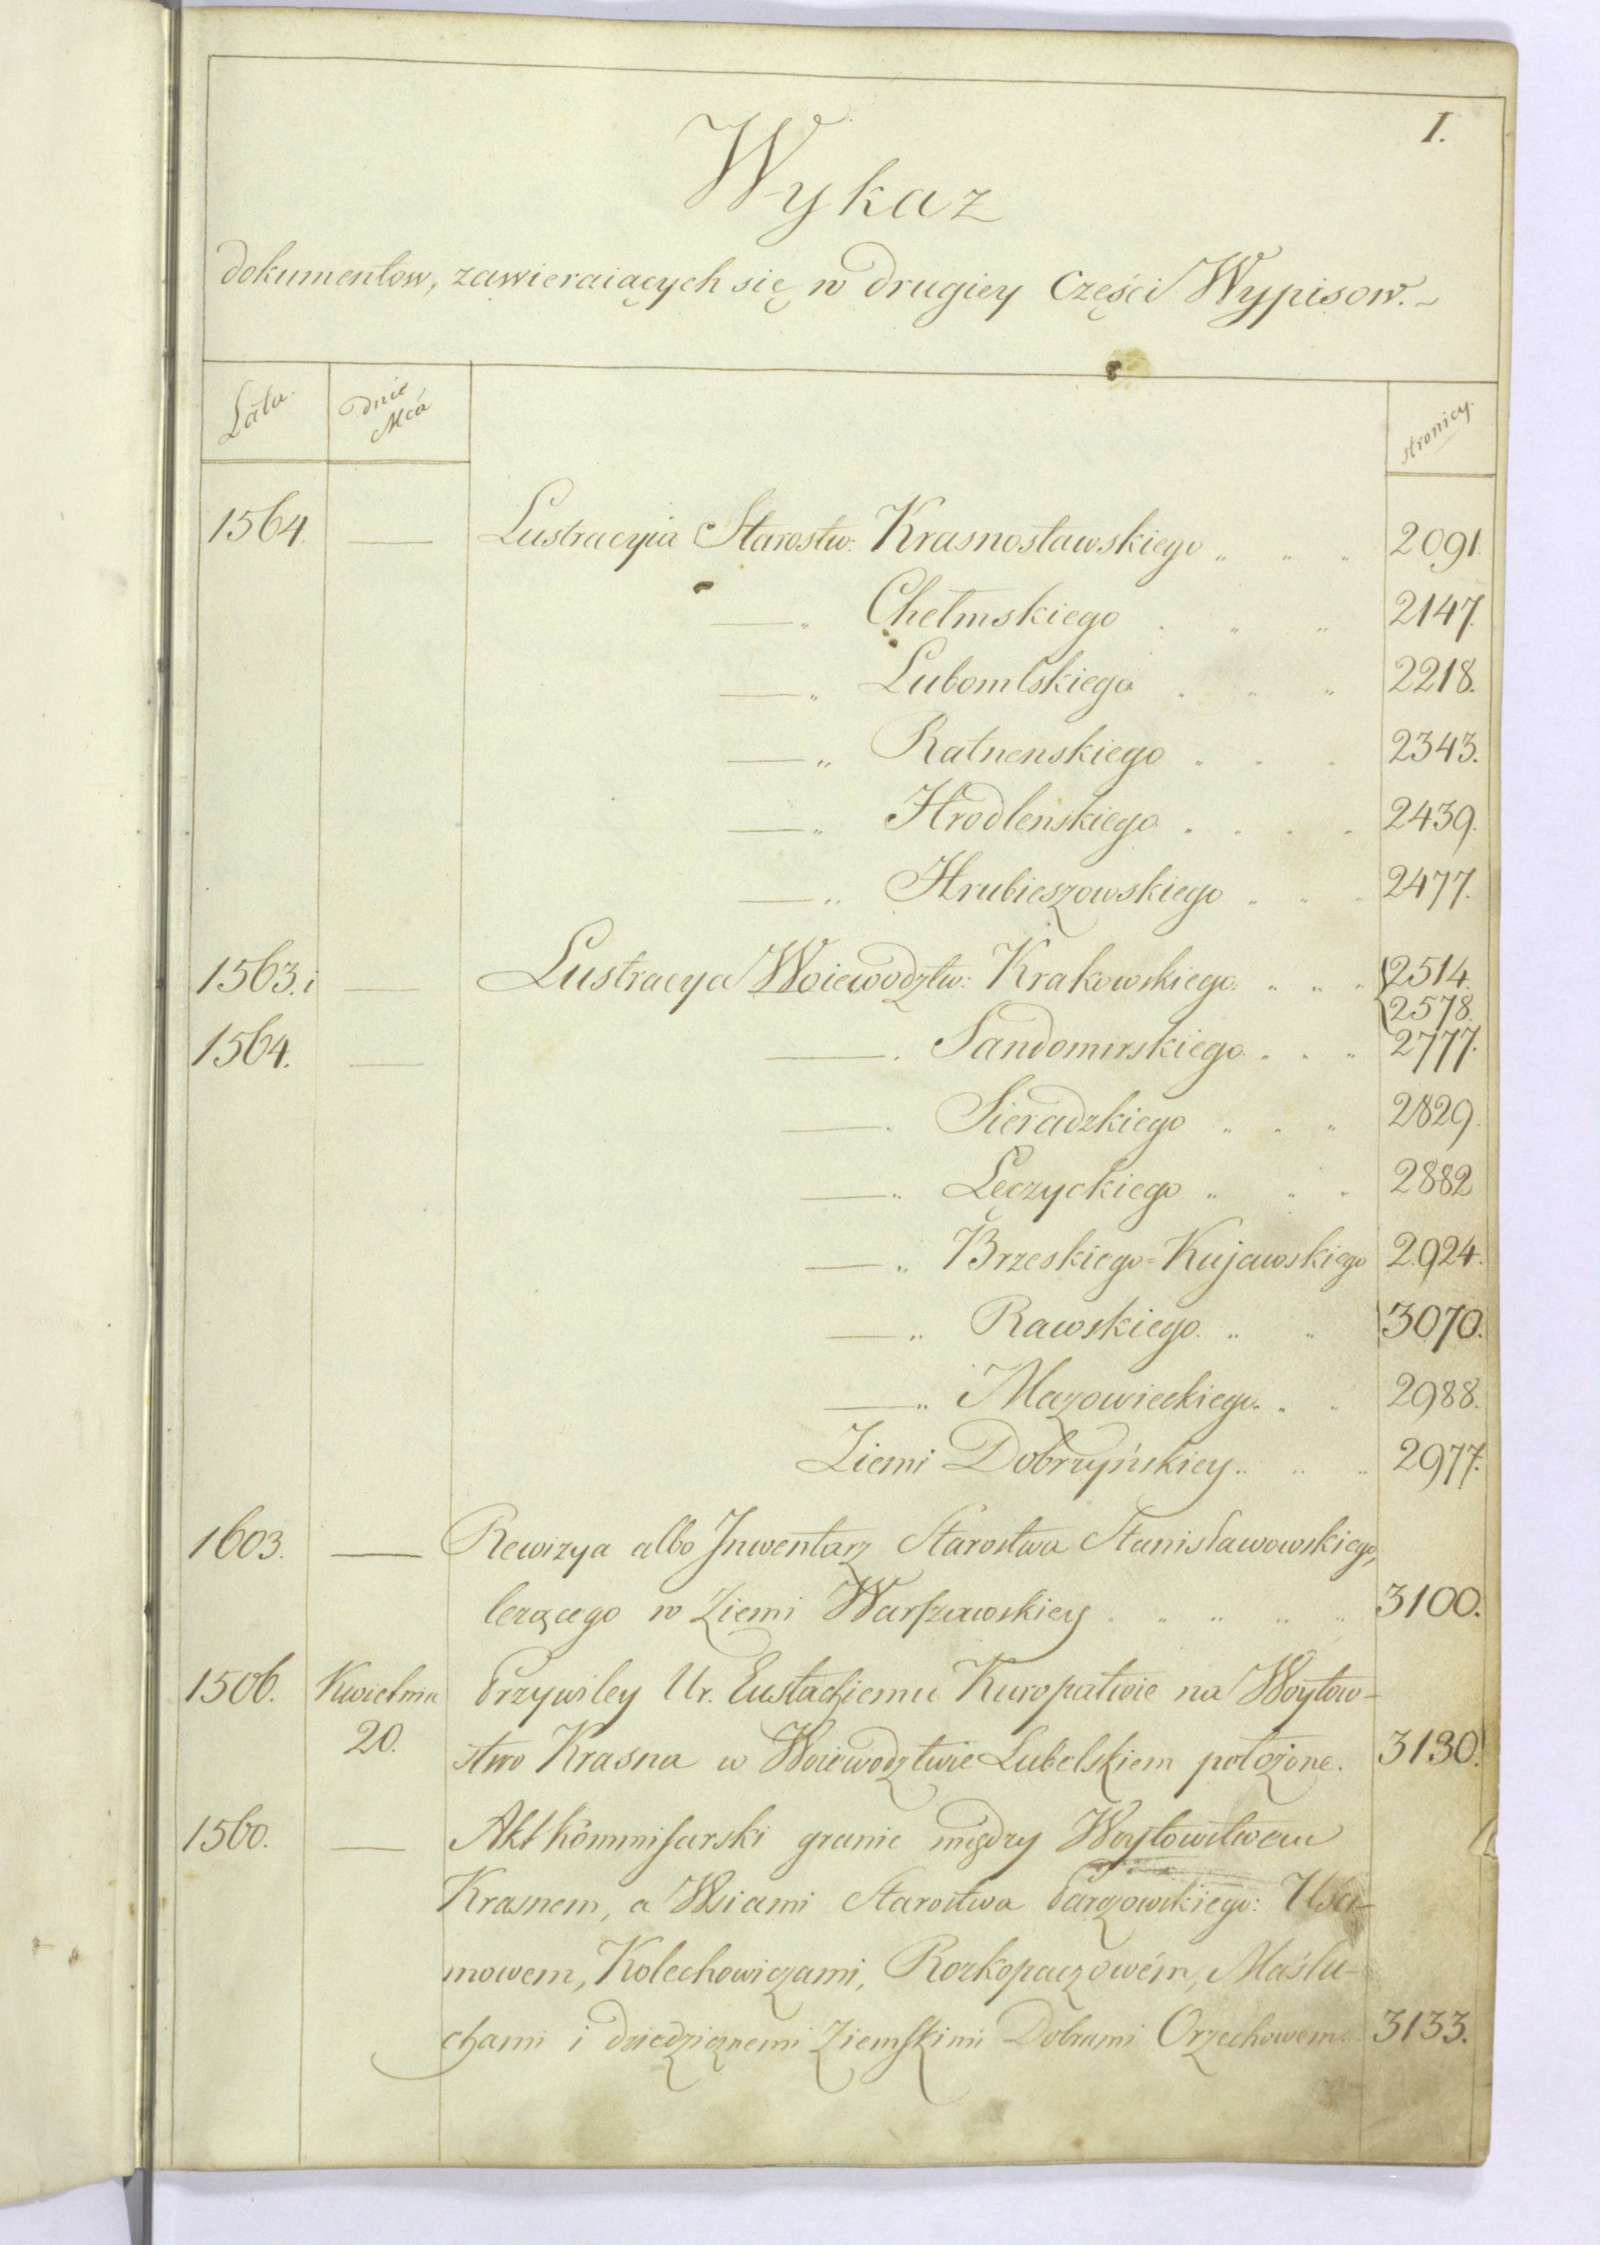 I.
Wykaz
dokumentow, zawieraiących się w drugiey Części Wypisow.
Lata. dnie Mca stronicy.
1564. — Lustracyia Starostw: Krasnostawskiego 2091.
—„ Chełmskiego 2147.
—„ Lubomlskiego 2218.
—„ Ratnenskiego 2343.
—„ Hrodlenskiego 2439.
—„ Hrubieszowskiego 2477.
1563. i — Lustracya Woiewodztw: Krakowskiego 2514.
2578.
1564. — —. Sandomirskiego 2777.
—. Sieradzkiego 2829.
—„ Łęczyckiego 2882
—„ Brzeskiego=Kujawskiego 2924.
—„ Rawskiego 3070.
—„ Mazowieckiego 2988.
Ziemi Dobrzyńskiey 2977.
1603. — Rewizya albo Inwentarz Starostwa Stanisławowskiego,
leżącego w Ziemi Warszawskiey 3100.
1506. Kwietnia Przywiley Ur. Eustachiemu Kuropatwie na Woytow-
20. stwo Krasna w Woiewodztwie Lubelskiem położone. 3130.
1560. — Akt kommissarski granic między Woytowstwem
Krasnem, a Wsiami Starostwa Parczowskiego: Usci-
mowem, Kolechowiczami, Rozkopaczowém, Maślu-
chami i dziedzicznemi Ziemskimi Dobrami Orzechowem. 3133.